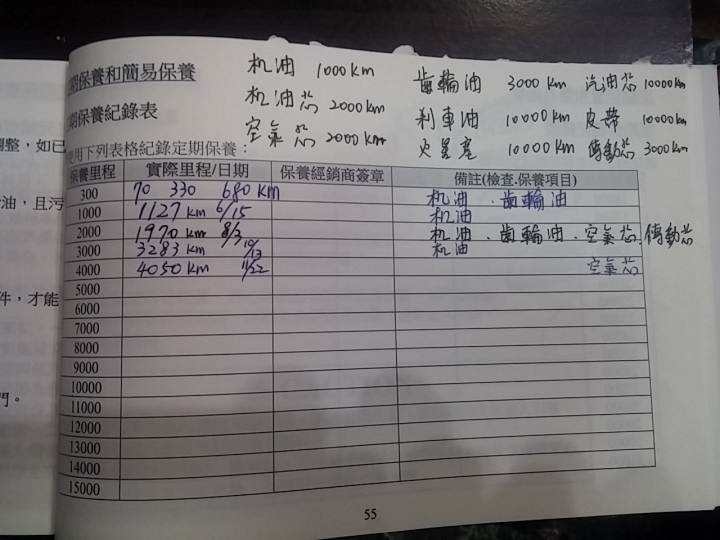 期保養和簡易保養
机油 1000km
机油芯 2000km
空氣芯 2000km
齒輪油 3000km 汽油芯 10000km
剎車油 10000km 皮帶 10000km
火星塞 10000km 傳動芯 3000km
期保養紀錄表
用下列表格紀錄定期保養：
調整，如已
油，且污
件，才能
門。
保養里程 實際里程/日期 保養經銷商簽章 備註(檢查.保養項目)
300 70 330 680KM 机油．齒輪油
1000 1127km 6/15 机油
2000 1970km 8/3 机油．齒輪油．空氣芯．傳動芯
3000 3283km 10/13 机油
4000 4050km 11/22 空氣芯
5000
6000
7000
8000
9000
10000
11000
12000
13000
14000
15000
55